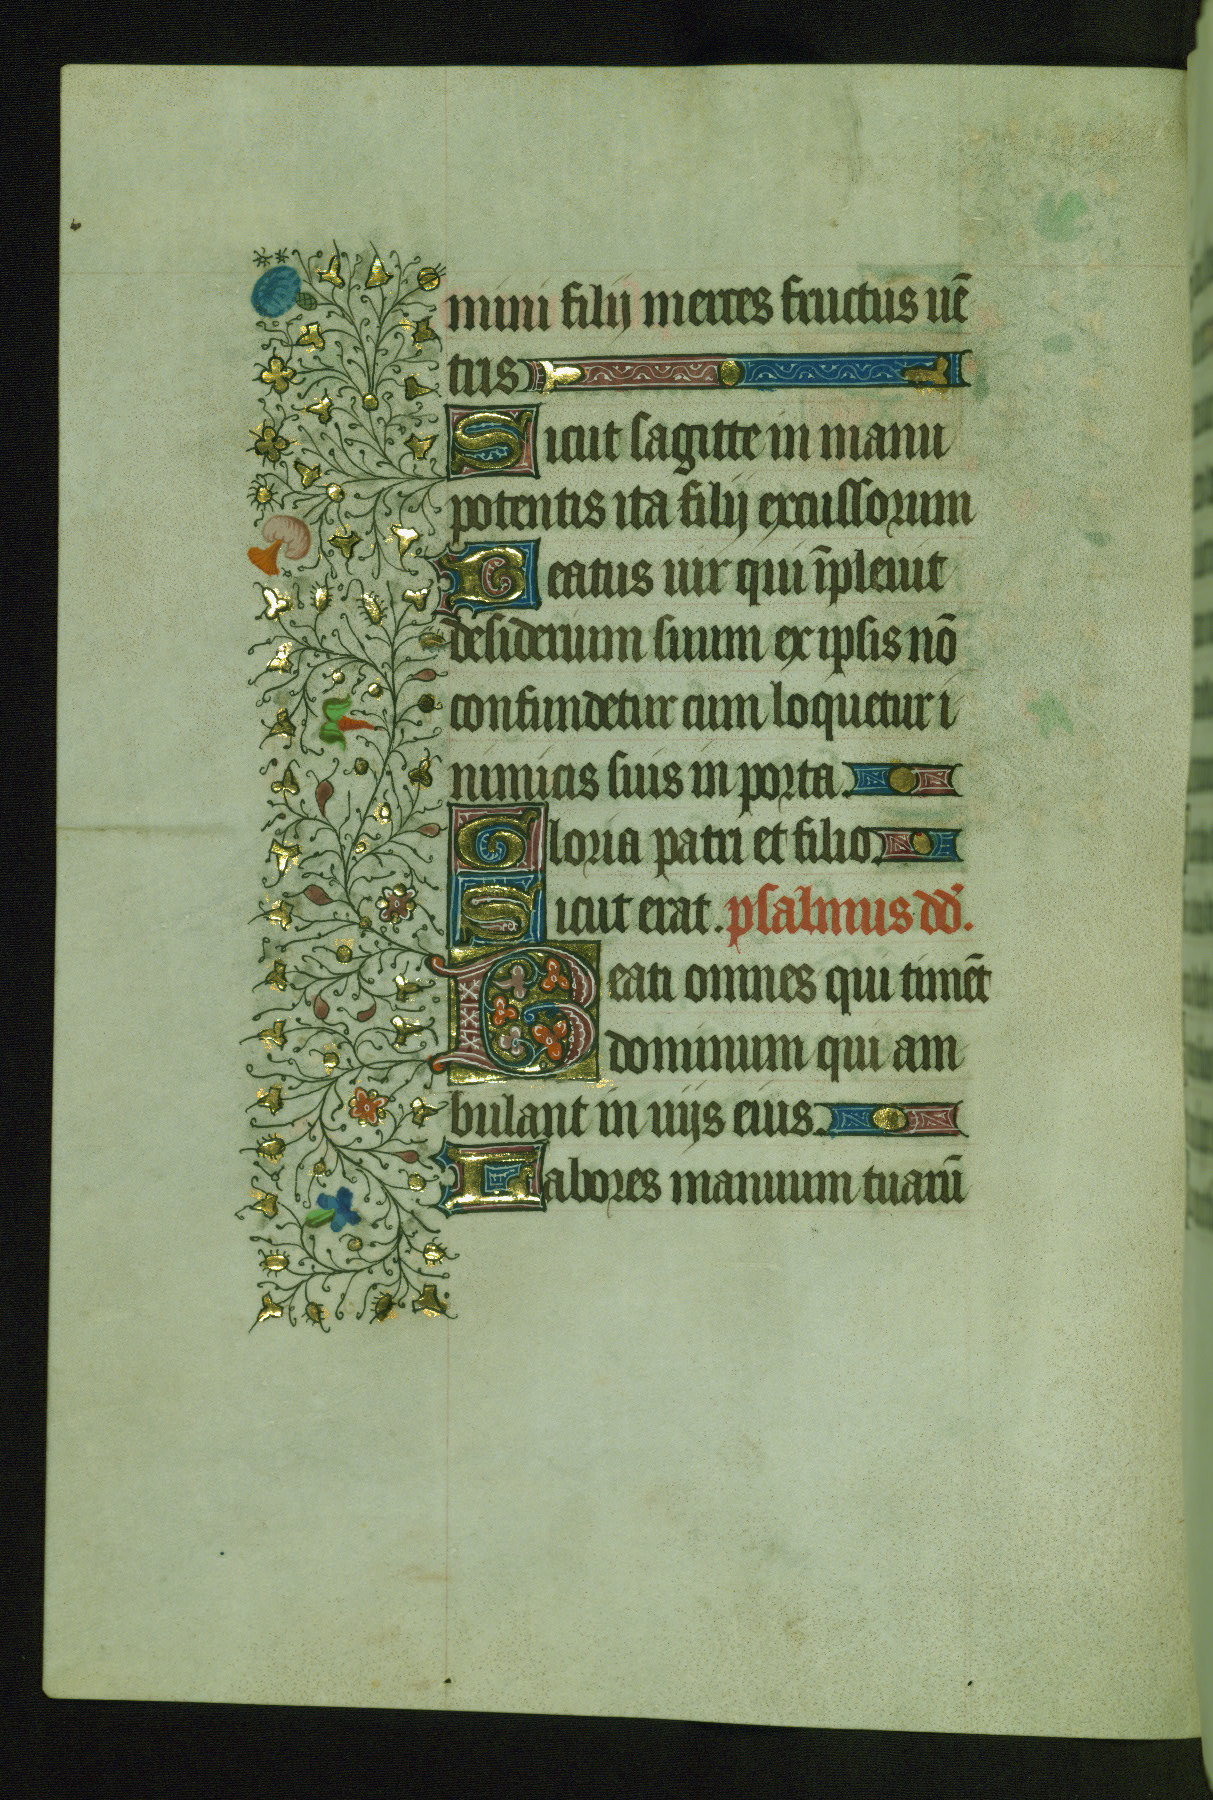 mini filij merces fructus uē
tris
Sicut sagitte in manu
potentis ita filij excussorum
Beatus uir qui īpleuit
desiderium suum ex ipsis nō
confundetur cum loquetur i
nimicis suis in porta.
Gloria patri et filio
Sicut erat. psalmus dd.
Beati omnes qui timēt
dominum qui am
bulant in uijs eius.
Labores manuum tuarū